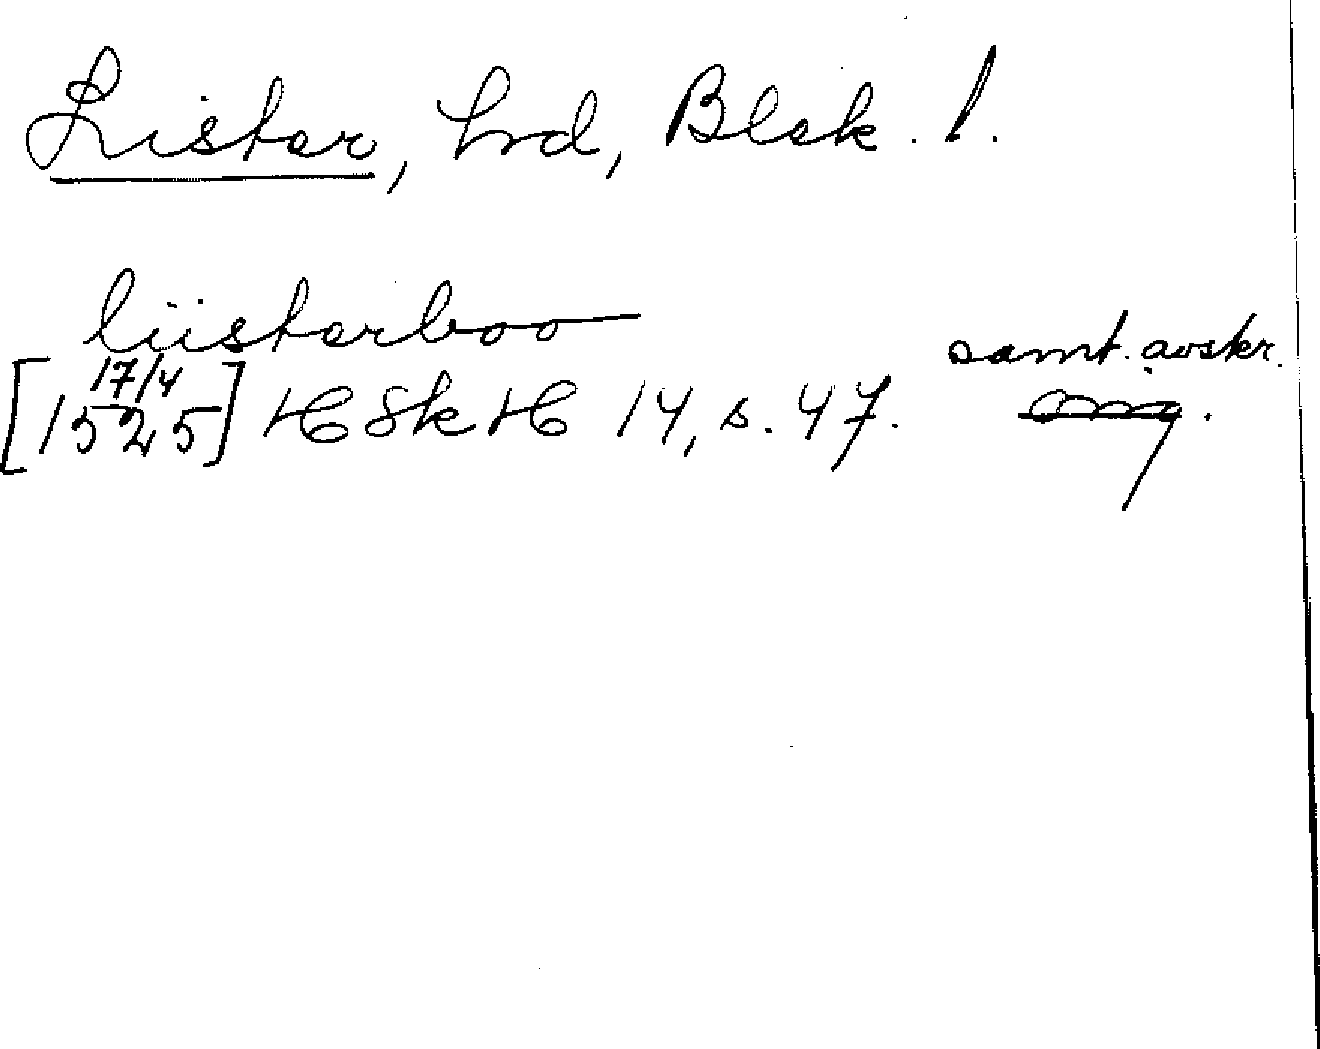 Lister, hrd, Blek. l.
liisterboo
samt. avskr.
[17/4 1525] HSkH 14, s. 47.